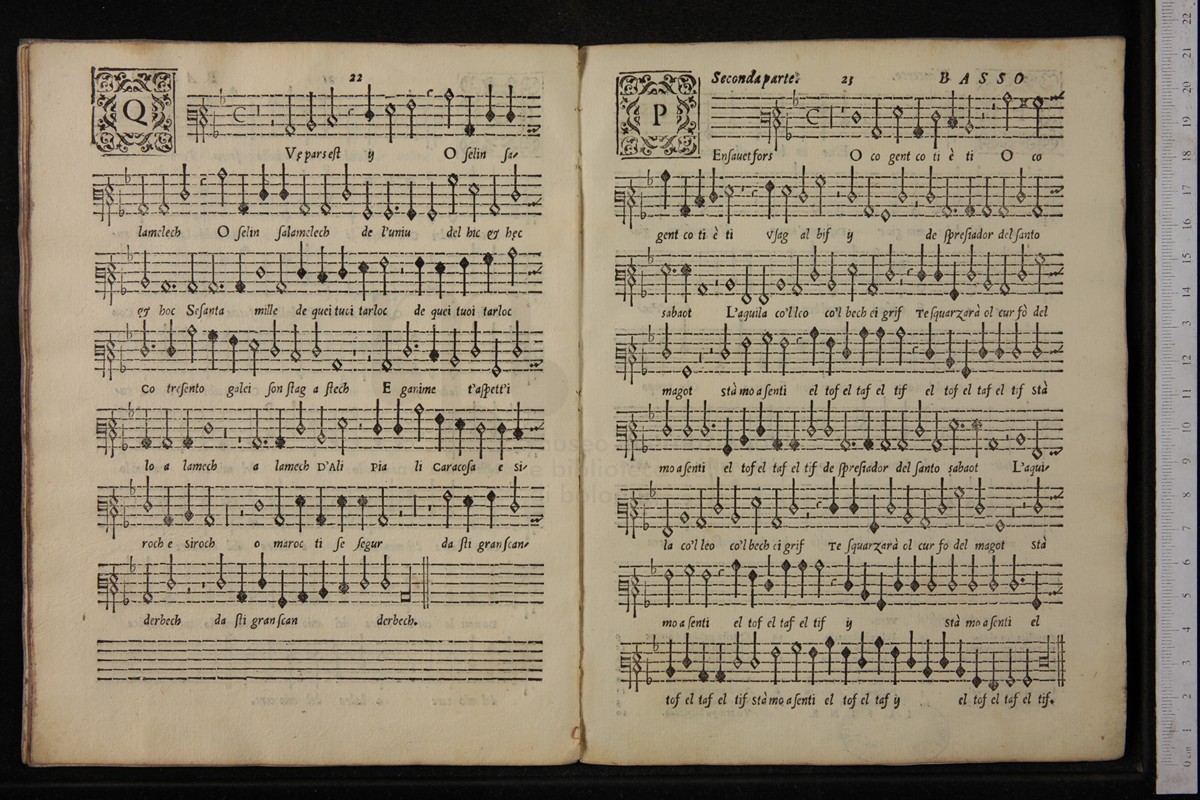 22
Q
Ve pars est y O selin sa-
lamelech O selin salamelech de l'univ del hic & hęc
& hoc Sesanta mille de quei tuci tarloc de quei tuoi tarloc
Co tresento galei son stag a stech E ganime t'aspett'i
lo a lamech a lamech D'Ali Pia li Caracosa e si-
roch e siroch o maroc ti se segur da sti gran scan-
derbech da sti gran scan derbech.
Seconda parte. 23 BASSO
P
Ensauet fors O co gent co ti è ti O co
gent co ti è ti vsag al bif y de spresiador del santo
sabaot L'aquila co'l leo co'l bech ci grif Te squarzarà ol cur fò del
magot stà mo a senti el tof el taf el tif el tof el taf el tif stà
mo a senti el tof el taf el tif de spresiador del santo sabaot L'aqui-
la co'l leo co'l bech ci grif Te squarzarà ol cur fo del magot stà
mo a senti el tof el taf el tif y stà mo a senti el
tof el taf el tif stà mo a senti el tof el taf y el tof el taf el tif.